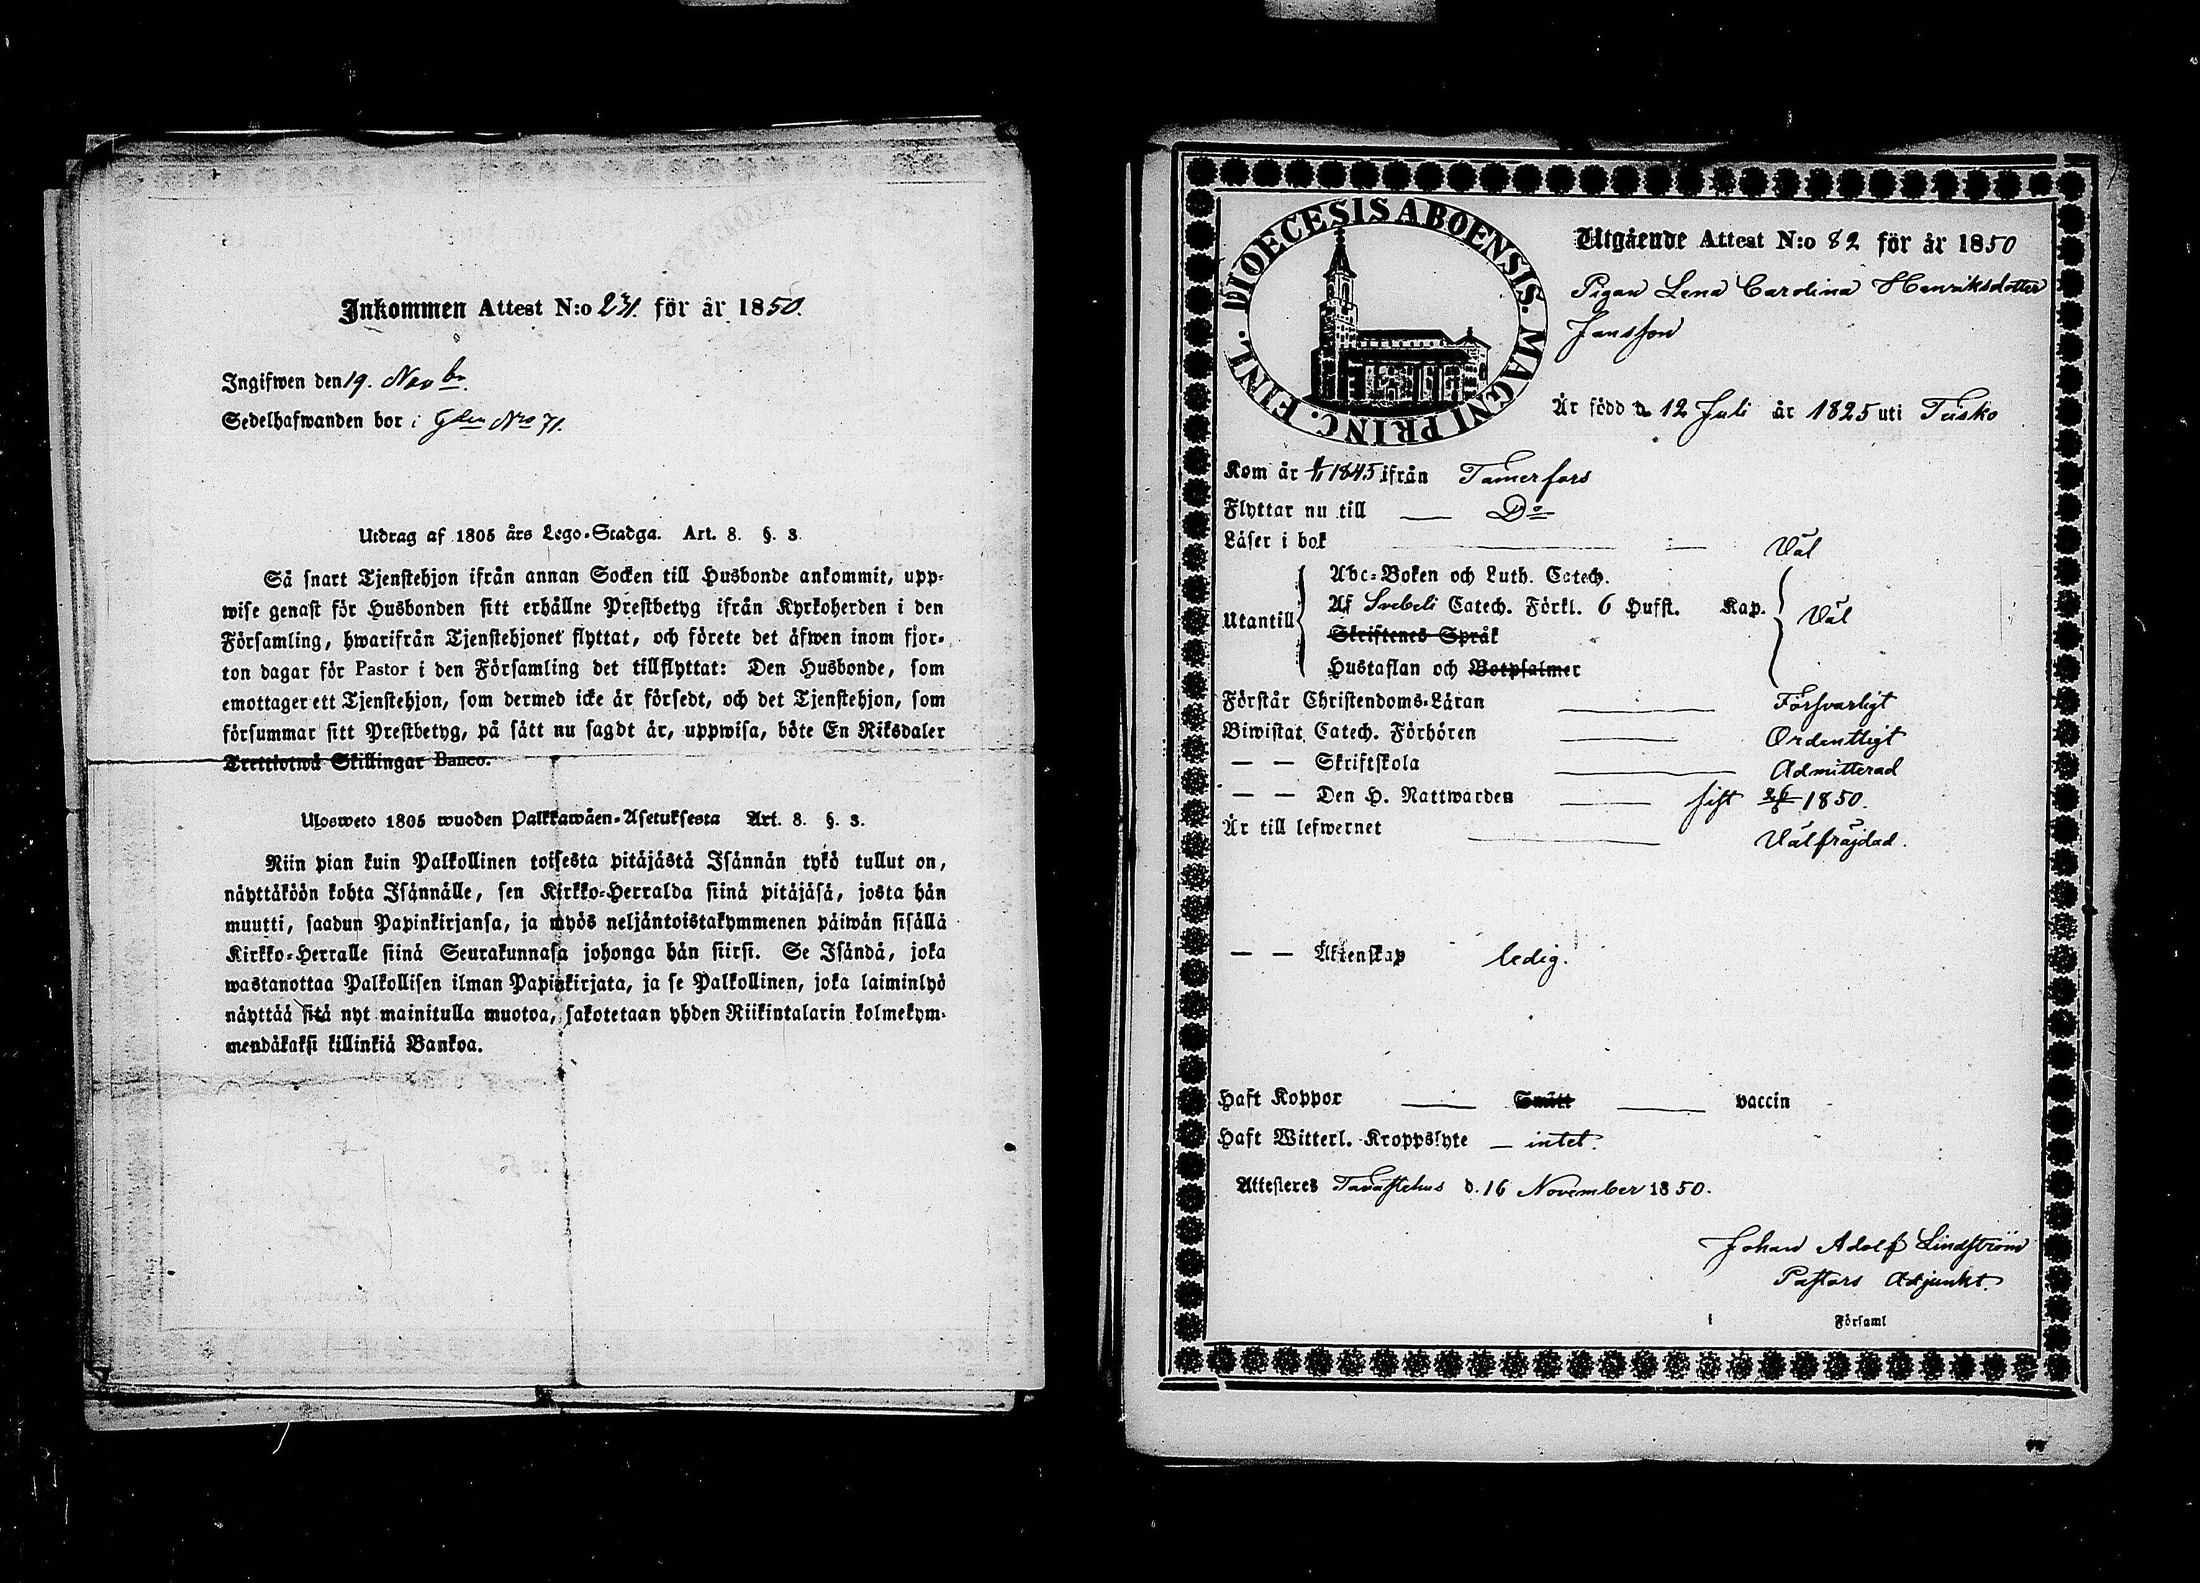 Inkommen Attest N:o 231. för år 1850.
Ingifwen den 19. Novbr.
Sedelhafwanden bor i gden No 71.
Utdrag af 1805 års Lego-Stadga. Art. 8. §. 3.
Så snart Tjenstehjon ifrån annan Socken till Husbonde ankommit, upp-
wise genast för Husbonden sitt erhållne Prestbetyg ifrån Kyrkoherden i den
Församling, hwarifrån Tjenstehjonet flyttat, och förete det äfwen inom fjor-
ton dagar för Pastor i den Församling det tillflyttat: Den Husbonde, som
emottager ett Tjenstehjon, som dermed icke är försedt, och det Tjenstehjon, som
försummar sitt Prestbetyg, på sätt nu sagdt är, uppwisa, böte En Riksdaler
Trettiotwå Skillingar Banco.
Ulosweto 1805 wuoden Palkkawäen-Asetuksesta Art. 8. §. 3.
Niin pian kuin Palkollinen toisesta pitäjästä Isännän tykö tullut on,
näyttäköön kohta Isännälle, sen Kirkko-Herralda siinä pitäjäsä, josta hän
muutti, saadun Papinkirjansa, ja myös neljäntoistakymmenen päiwän sisällä
Kirkko-Herralle siinä Seurakunnasa johonga hän siirsi. Se Isändä, joka
wastanottaa Palkollisen ilman Papinkirjata, ja se Palkollinen, joka laiminlyö
näyttää sitä nyt mainitulla muotoa, sakotetaan yhden Riikintalarin kolmekym-
mendäkaksi killinkiä Bankoa.
DIOECESIS ABOENSIS. MAGNI PRINC. FINL.
Utgående Attest N:o 82 för år 1850
Pigan Lena Carolina Henriksdotter
Jansson
Är född d. 12 Juli år 1825 uti Teisko
Kom år 1845 ifrån Tamerfors
Flyttar nu till Do
Läser i bok Väl
Abc-Boken och Luth. Catech.
Utantill Af Svebeli Catech. Förkl. 6 Hufst. Kap. Väl
Skriftenes Språk
Hustaflan och Botpsalmer
Förstår Christendoms-Läran Försvarligt
Biwistat Catech. Förhören Ordentligt
— — Skriftskola Admitterad
— — Den H. Nattwarden sist 1850.
Är till lefwernet Välfräjdad.
— — Äktenskap ledig.
Haft Koppor Smått vaccin
Haft Witterl. Kroppslyte — intet.
Attesteres Tavastehus d. 16 November 1850.
Johan Adolf Lindström
Pastors Adjunkt.
i Församl